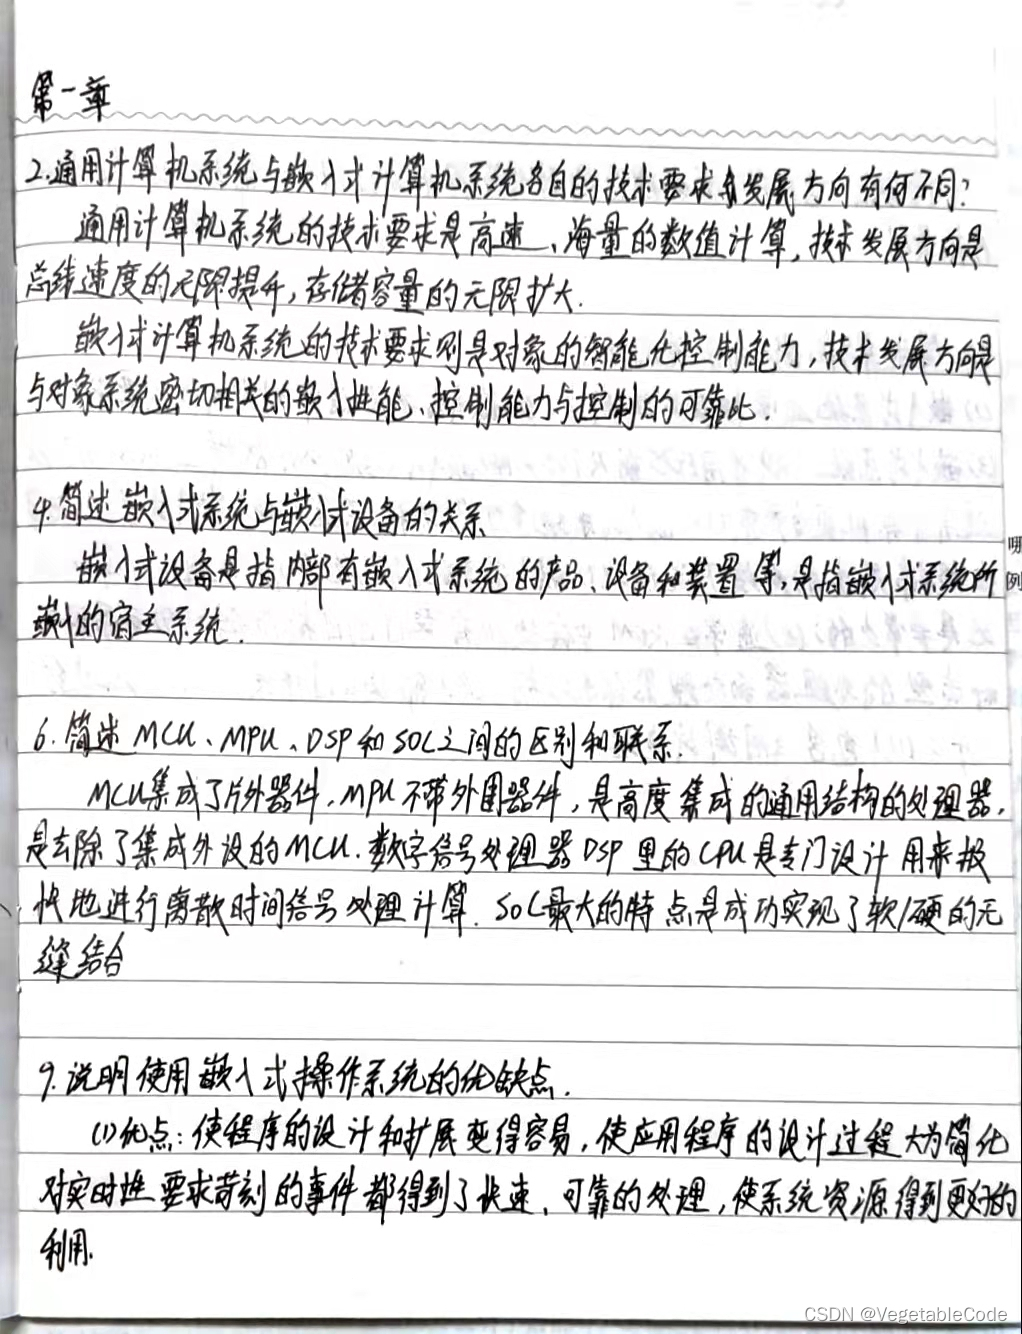 第一章
2.通用计算机系统与嵌入式计算机系统各自的技术要求和发展方向有何不同?
通用计算机系统的技术要求是高速、海量的数值计算,技术发展方向是
总线速度的无限提升,存储容量的无限扩大.
嵌入式计算机系统的技术要求则是对象的智能化控制能力,技术发展方向是
与对象系统密切相关的嵌入性能、控制能力与控制的可靠比.
4.简述嵌入式系统与嵌入式设备的关系
嵌入式设备是指内部有嵌入式系统的产品、设备和装置等,是指嵌入式系统所
嵌入的宿主系统.
6.简述MCU、MPU、DSP和SOC之间的区别和联系.
MCU集成了片外器件,MPU不带外围器件,是高度集成的通用结构的处理器.
是去除了集成外设的MCU.数字信号处理器DSP里的CPU是专门设计用来极
快地进行离散时间信号处理计算.SOC最大的特点是成功实现了软/硬的无
缝结合
9.说明使用嵌入式操作系统的优缺点.
(1)优点:使程序的设计和扩展变得容易,使应用程序的设计过程大为简化
对实时性要求苛刻的事件都得到了快速、可靠的处理,使系统资源得到更好的
利用.
哪
例
CSDN @VegetableCode